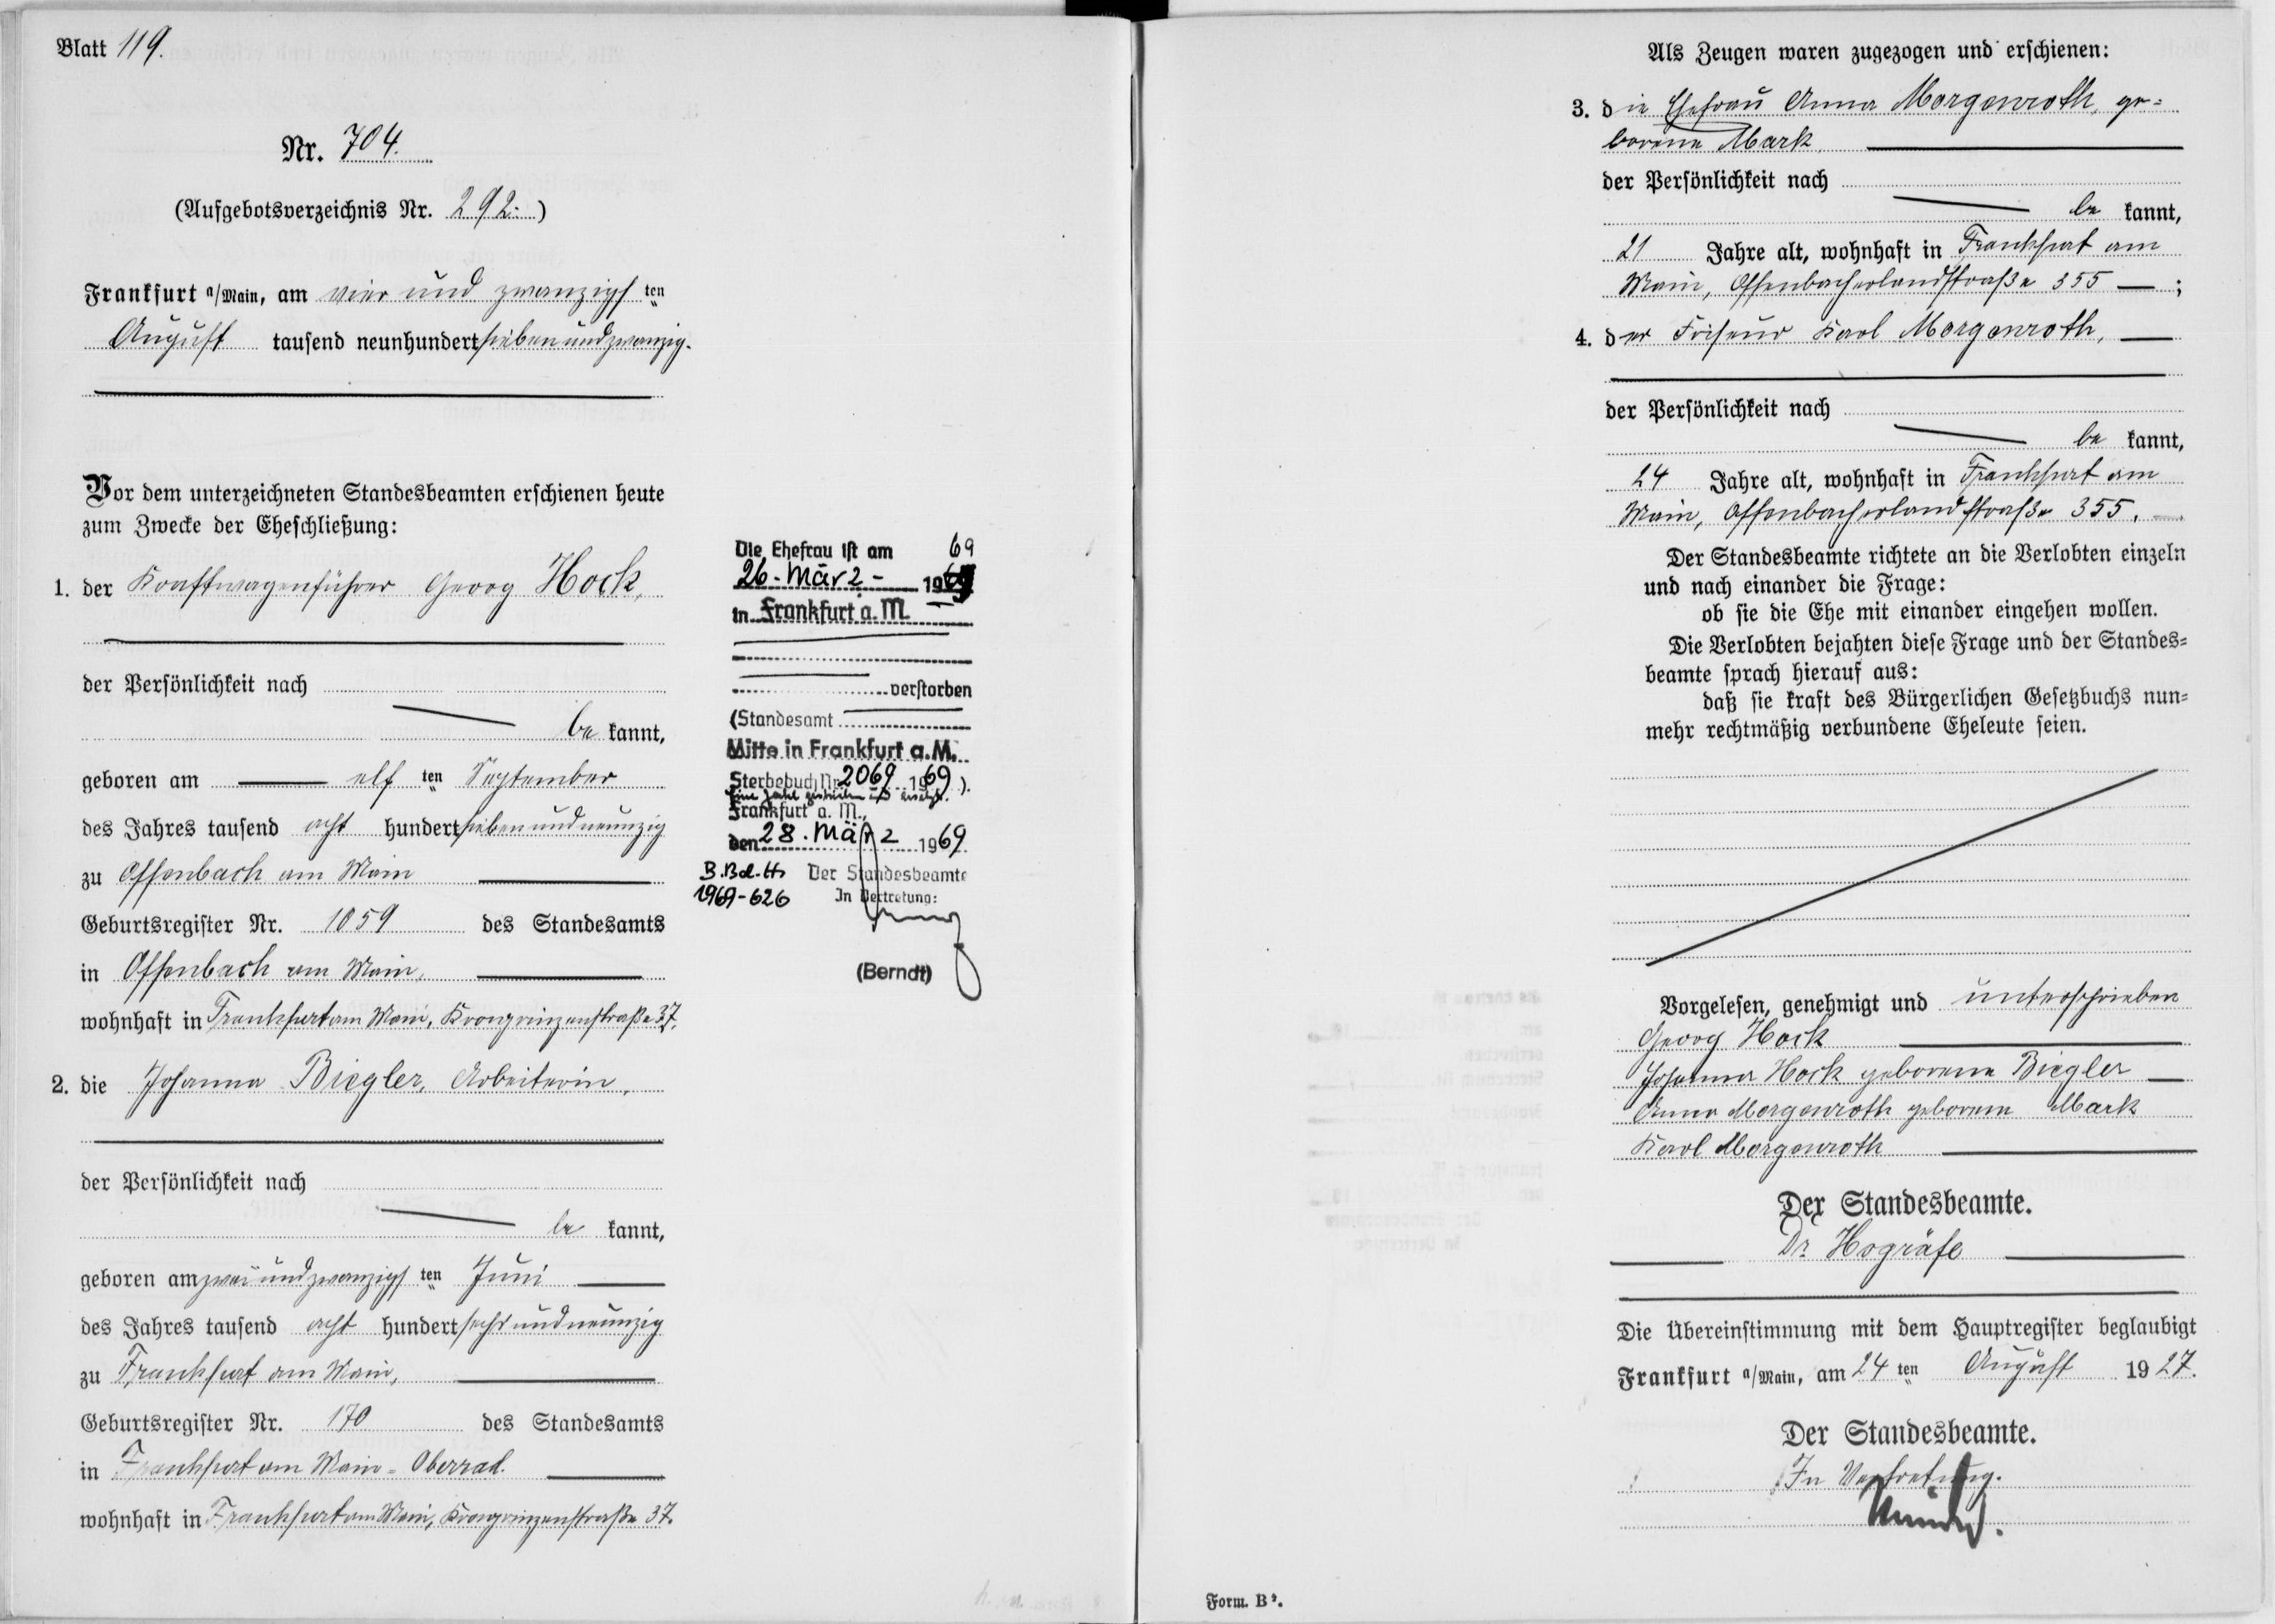 Blatt 119.
Nr. 704.
(Aufgebotsverzeichnis Nr. 292.)
Frankfurt a/Main, am vier und zwanzigsten
August tausend neunhundert siebenundzwanzig.
Vor dem unterzeichneten Standesbeamten erschienen heute
zum Zwecke der Eheschließung:
1. der Kraftwagenführer Georg Hock,
der Persönlichkeit nach
bekannt,
geboren am elften September
des Jahres tausend acht hundert siebenundneunzig
zu Offenbach am Main
Geburtsregister Nr. 1059 des Standesamts
in Offenbach am Main,
wohnhaft in Frankfurt am Main, Kronprinzenstraße 37.
2. die Johanna Biegler, Arbeiterin,
der Persönlichkeit nach
bekannt,
geboren am zweiundzwanzigsten Juni
des Jahres tausend acht hundert sechsundneunzig
zu Frankfurt am Main,
Geburtsregister Nr. 170 des Standesamts
in Frankfurt am Main-Oberrad.
wohnhaft in Frankfurt am Main, Kronprinzenstraße 37.
Die Ehefrau ist am 69
26. März 19
in Frankfurt a. M
verstorben
(Standesamt
Mitte in Frankfurt a. M.
Sterbebuch Nr. 2069 1969).
Eine Zahl gestrichen und ersetzt.
Frankfurt a. M.,
den 28. März 1969
B.Bd.H. Der Standesbeamte
1969-626 In Vertretung:
(Berndt)
Als Zeugen waren zugezogen und erschienen:
3. die Ehefrau Anna Morgenroth, ge=
borene Mark
der Persönlichkeit nach
bekannt,
21 Jahre alt, wohnhaft in Frankfurt am
Main, Offenbacherlandstraße 355 ;
4. der Friseur Karl Morgenroth,
der Persönlichkeit nach
bekannt,
24 Jahre alt, wohnhaft in Frankfurt am
Main, Offenbacherlandstraße 355.
Der Standesbeamte richtete an die Verlobten einzeln
und nach einander die Frage:
ob sie die Ehe mit einander eingehen wollen.
Die Verlobten bejahten diese Frage und der Standes=
beamte sprach hierauf aus:
daß sie kraft des Bürgerlichen Gesetzbuchs nun=
mehr rechtmäßig verbundene Eheleute seien.
Vorgelesen, genehmigt und unterschrieben
Georg Hock
Johanna Hock geborene Biegler
Anna Morgenroth geborene Mark
Karl Morgenroth
Der Standesbeamte.
Dr. Hogräfe
Die Übereinstimmung mit dem Hauptregister beglaubigt
Frankfurt a/Main, am 24ten August 1927.
Der Standesbeamte.
In Vertretung.
Form. B².